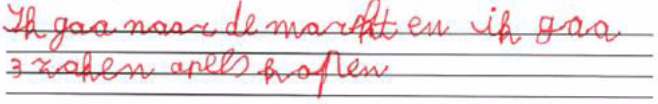 Ik gaa naar de markt en ik gaa
3 zaken apels kopen